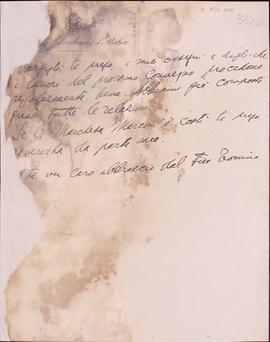 Accademia d'Italia
3520
ti prego, i miei ossequi e digli che
i lavori del prossimo Convegno procedono
regolarmente bene. Abbiamo già composto
quasi tutte le relazioni.
Se la Marchesa Marconi è costì ti prego
da parte mia.
Ti un caro abbraccio dal tuo